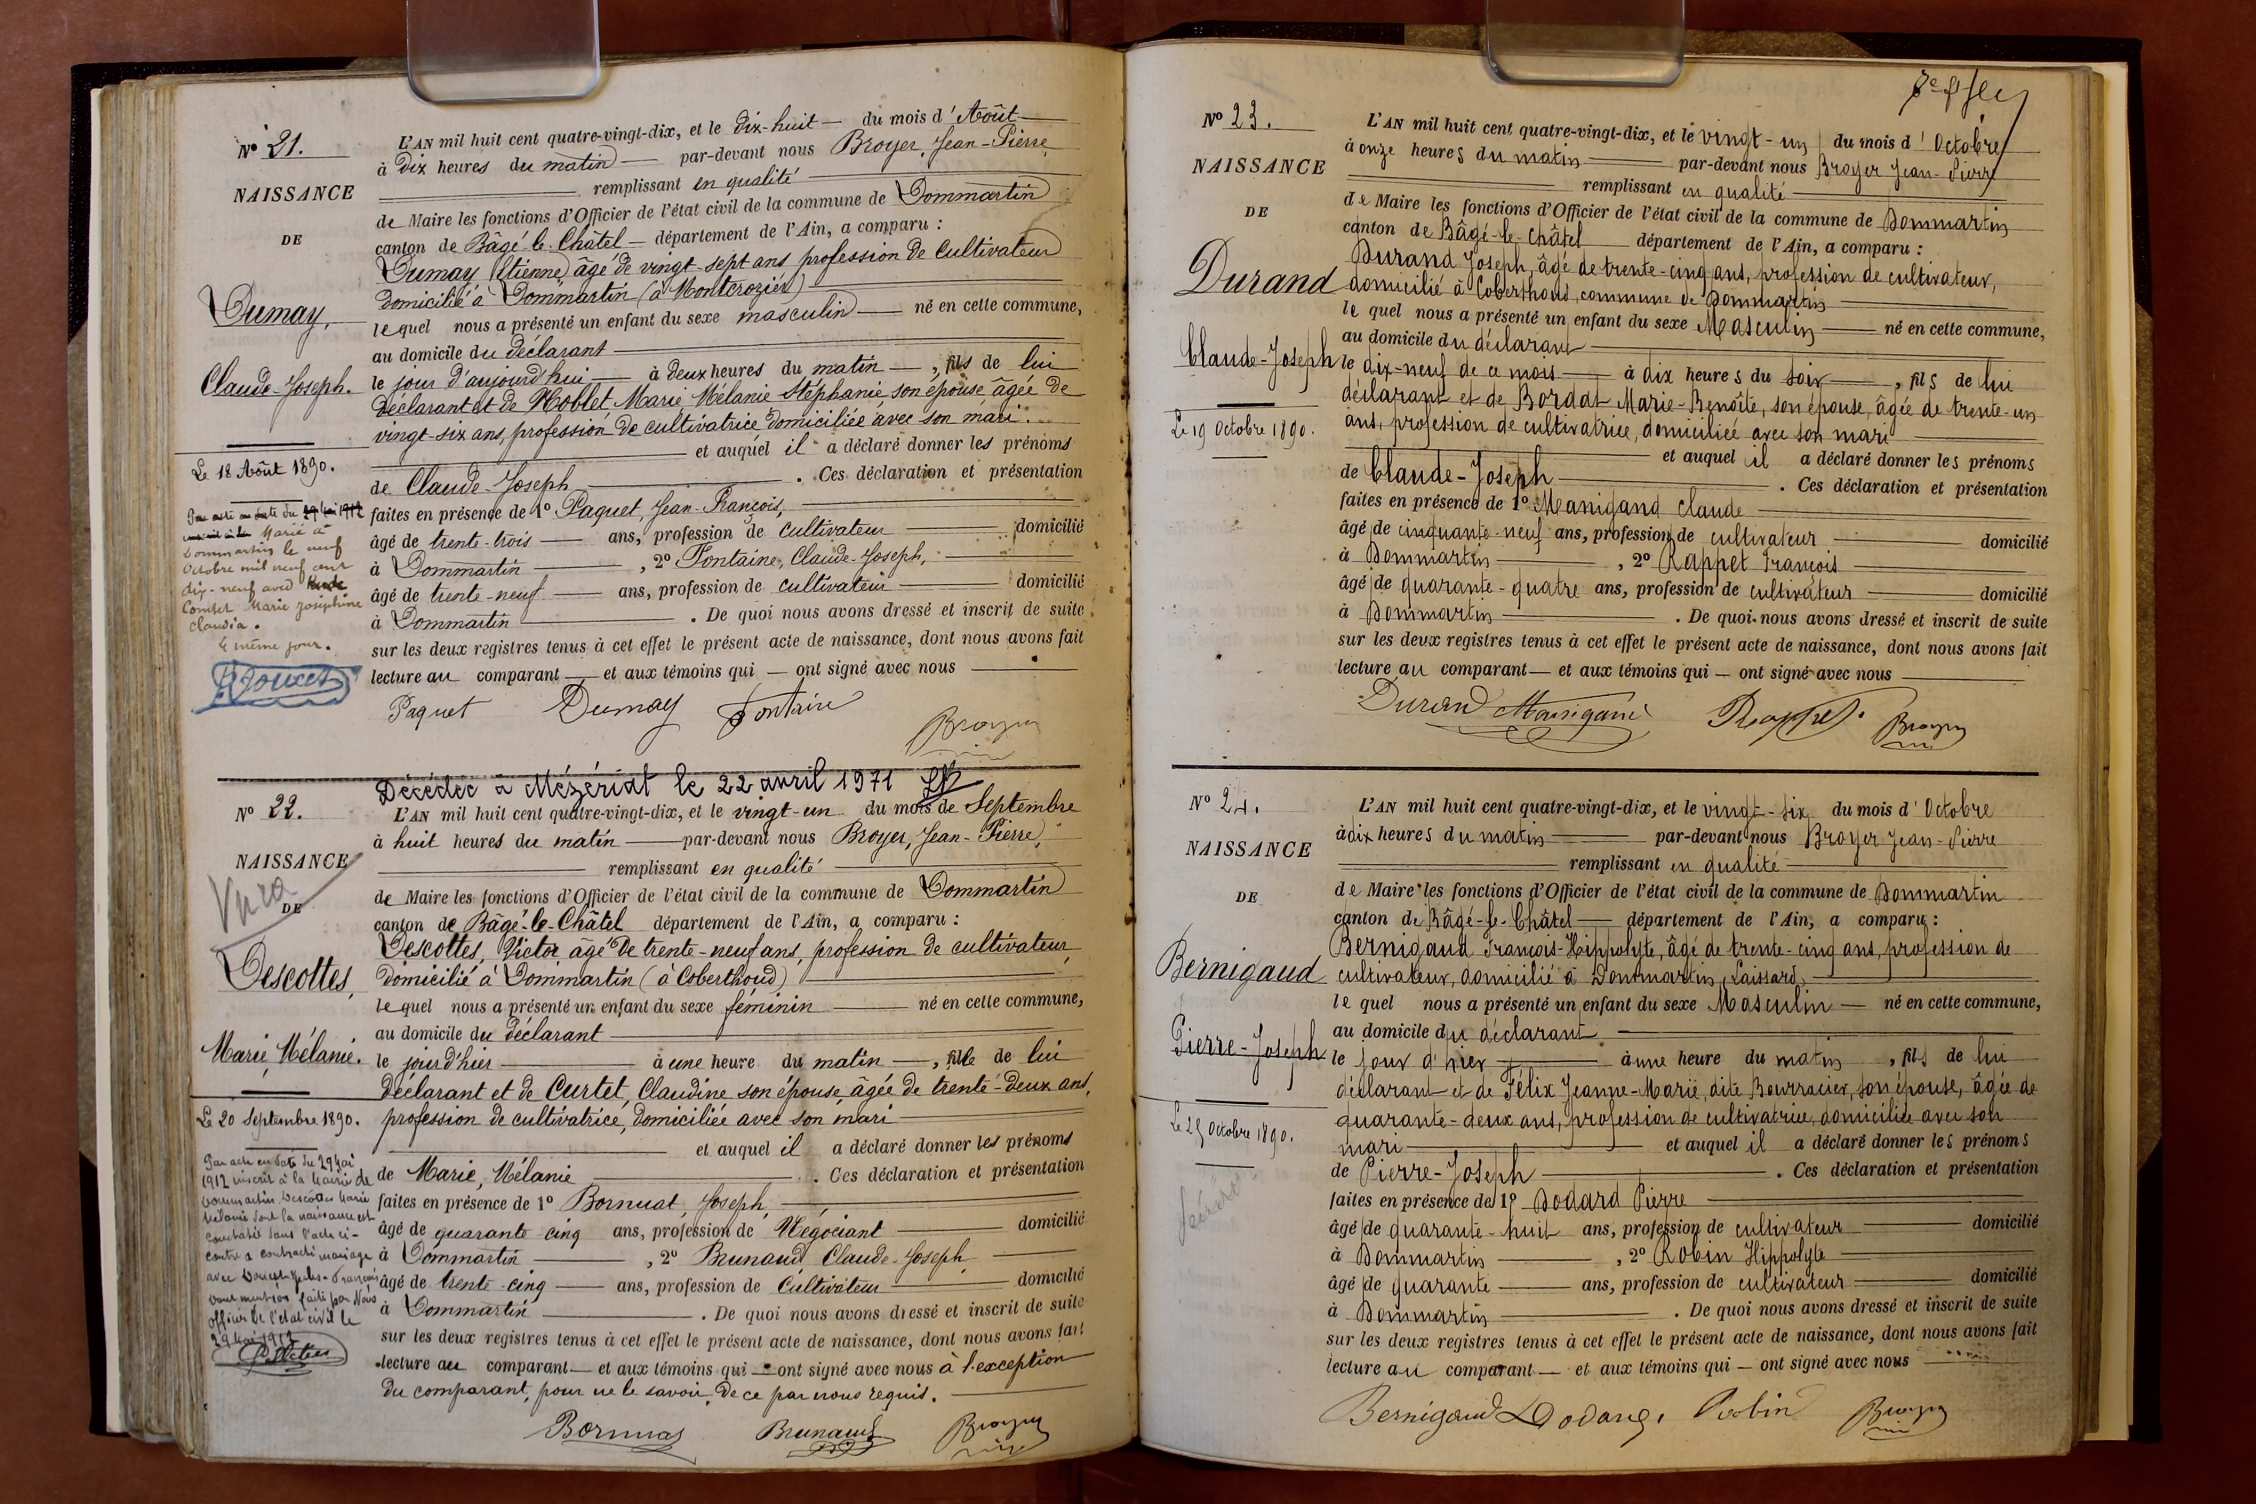 Nº 21.
NAISSANCE
DE
Dumay,
Claude-Joseph.
Le 18 Août 1890.
Marié à
Dommartin le neuf
Octobre mil neuf cent
dix-neuf avec
Marie Joséphine
Claudia.
Le même jour.
L'AN mil huit cent quatre-vingt-dix, et le dix-huit du mois d'Août
à dix heures du matin par-devant nous Broyer, Jean-Pierre,
remplissant en qualité
de Maire les fonctions d'Officier de l'état civil de la commune de Dommartin
canton de Bâgé-le-Châtel département de l'Ain, a comparu :
Dumay Etienne âgé de vingt-sept ans profession de cultivateur
domicilié à Dommartin (à Montcrozier)
lequel nous a présenté un enfant du sexe masculin né en cette commune,
au domicile du déclarant
le jour d'aujourd'hui à deux heures du matin , fils de lui
déclarant et de Noblet Marie Mélanie Stéphanie, son épouse, âgée de
vingt-six ans, profession de cultivatrice domiciliée avec son mari.
et auquel il a déclaré donner les prénoms
de Claude-Joseph . Ces déclaration et présentation
faites en présence de 1º Paquet, Jean-François,
âgé de trente-trois ans, profession de cultivateur domicilié
à Dommartin , 2º Fontaine, Claude-Joseph,
âgé de trente-neuf ans, profession de cultivateur domicilié
à Dommartin . De quoi nous avons dressé et inscrit de suite
sur les deux registres tenus à cet effet le présent acte de naissance, dont nous avons fait
lecture au comparant et aux témoins qui ont signé avec nous
Paquet Dumay Fontaine
Broyer
Décédée à Mézériat le 22 avril 1971
Nº 22.
NAISSANCE
DE
Descottes,
Marie, Mélanie.
Le 20 Septembre 1890.
Par acte en date du 29 Mai
1912 inscrit à la Mairie de
Dommartin Descottes Marie
Mélanie dont la naissance est
constatée dans l'acte ci-
contre a contracté mariage
avec François
dont mention faite par Nous
officier de l'état civil le
29 Mai 1912
L'AN mil huit cent quatre-vingt-dix, et le vingt-un du mois de Septembre
à huit heures du matin par-devant nous Broyer, Jean-Pierre,
remplissant en qualité
de Maire les fonctions d'Officier de l'état civil de la commune de Dommartin
canton de Bâgé-le-Châtel département de l'Ain, a comparu :
Descottes, Victor âgé de trente-neuf ans, profession de cultivateur,
domicilié à Dommartin (à Coberthoud)
lequel nous a présenté un enfant du sexe féminin né en cette commune,
au domicile du déclarant
le jour d'hier à une heure du matin , fille de lui
déclarant et de Curtet, Claudine son épouse, âgée de trente-deux ans,
profession de cultivatrice, domiciliée avec son mari
et auquel il a déclaré donner les prénoms
de Marie, Mélanie . Ces déclaration et présentation
faites en présence de 1º Bornuat, Joseph,
âgé de quarante cinq ans, profession de Négociant domicilié
à Dommartin , 2º Brunaud Claude-Joseph
âgé de trente-cinq ans, profession de Cultivateur domicilié
à Dommartin . De quoi nous avons dressé et inscrit de suite
sur les deux registres tenus à cet effet le présent acte de naissance, dont nous avons fait
lecture au comparant et aux témoins qui ont signé avec nous à l'exception
du comparant, pour ne le savoir, de ce par nous requis.
Brunaud Broyer
Nº 23.
NAISSANCE
DE
Durand
Claude-Joseph
Le 19 Octobre 1890.
L'AN mil huit cent quatre-vingt-dix, et le vingt-un du mois d'Octobre
à onze heures du matin par-devant nous Broyer Jean-Pierre
remplissant en qualité
de Maire les fonctions d'Officier de l'état civil de la commune de Dommartin
canton de Bâgé-le-Châtel département de l'Ain, a comparu :
Durand Joseph, âgé de trente-cinq ans, profession de cultivateur,
domicilié à Coberthoud, commune de Dommartin
lequel nous a présenté un enfant du sexe Masculin né en cette commune,
au domicile du déclarant
le dix-neuf de ce mois à dix heures du soir , fils de lui
déclarant et de Bordat Marie-Benoîte, son épouse, âgée de trente-un
ans, profession de cultivatrice, domiciliée avec son mari
et auquel il a déclaré donner les prénoms
de Claude-Joseph . Ces déclaration et présentation
faites en présence de 1º Manigand Claude
âgé de cinquante-neuf ans, profession de cultivateur domicilié
à Dommartin , 2º Rappet François
âgé de quarante-quatre ans, profession de cultivateur domicilié
à Dommartin . De quoi nous avons dressé et inscrit de suite
sur les deux registres tenus à cet effet le présent acte de naissance, dont nous avons fait
lecture au comparant et aux témoins qui ont signé avec nous
Durand Manigand Rappet Broyer
Nº 24.
NAISSANCE
DE
Bernigaud
Pierre-Joseph
Le 25 Octobre 1890.
L'AN mil huit cent quatre-vingt-dix, et le vingt-six du mois d'Octobre
à dix heures du matin par-devant nous Broyer Jean-Pierre
remplissant en qualité
de Maire les fonctions d'Officier de l'état civil de la commune de Dommartin
canton de Bâgé-le-Châtel département de l'Ain, a comparu :
Bernigaud François-Hippolyte, âgé de trente-cinq ans, profession de
cultivateur, domicilié à Dommartin,
lequel nous a présenté un enfant du sexe Masculin né en cette commune,
au domicile du déclarant
le jour d'hier à une heure du matin , fils de lui
déclarant et de Félix Jeanne-Marie, dite Bourracier, son épouse, âgée de
quarante-deux ans, profession de cultivatrice domiciliée avec son
mari et auquel il a déclaré donner les prénoms
de Pierre-Joseph . Ces déclaration et présentation
faites en présence de 1º Dodard Pierre
âgé de quarante-huit ans, profession de cultivateur domicilié
à Dommartin , 2º Robin Hippolyte
âgé de quarante ans, profession de cultivateur domicilié
à Dommartin . De quoi nous avons dressé et inscrit de suite
sur les deux registres tenus à cet effet le présent acte de naissance, dont nous avons fait
lecture au comparant et aux témoins qui ont signé avec nous
Bernigaud Robin Broyer